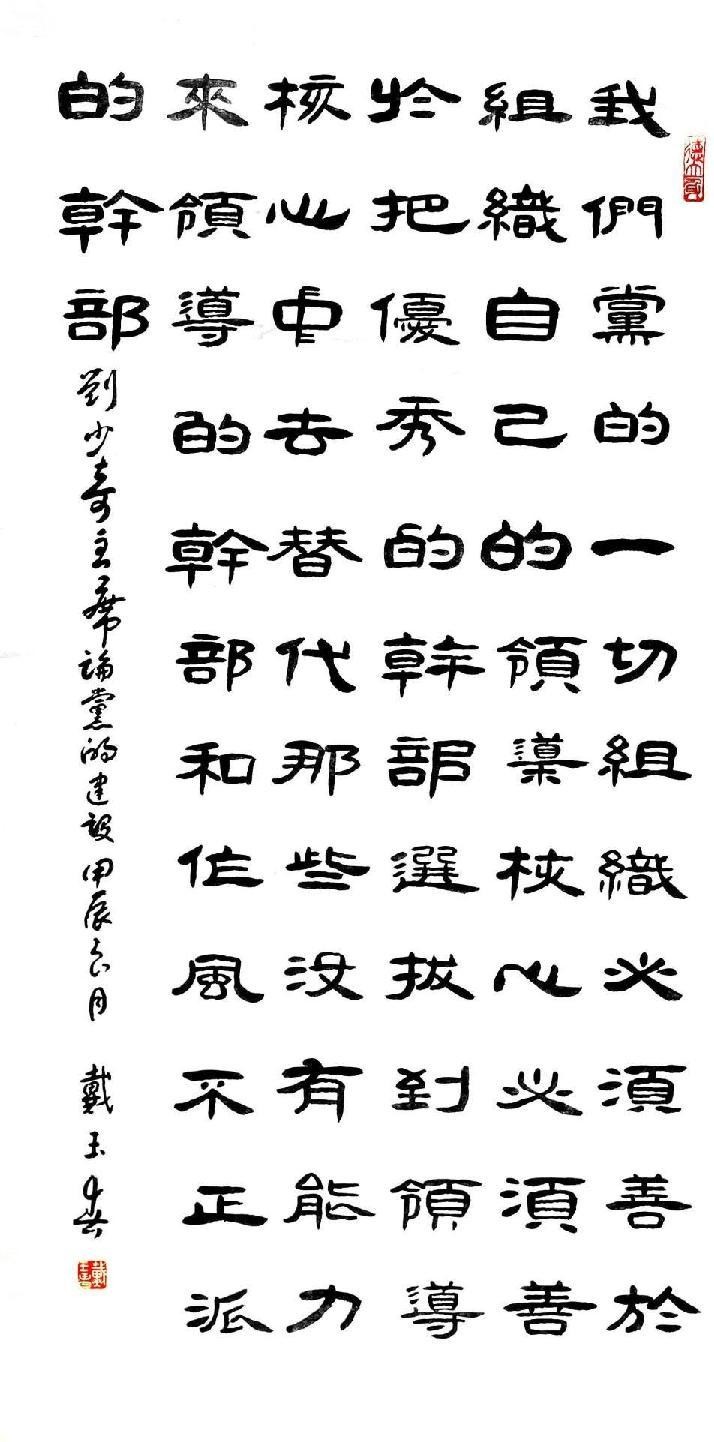 我們黨的一切組織必須善於
組織自己的領導核心必須善
於把優秀的幹部選拔到領導
核心中去替代那些沒有能力
來領導的幹部和作風不正派
的幹部
劉少奇主席論黨的建設甲辰六月 戴玉